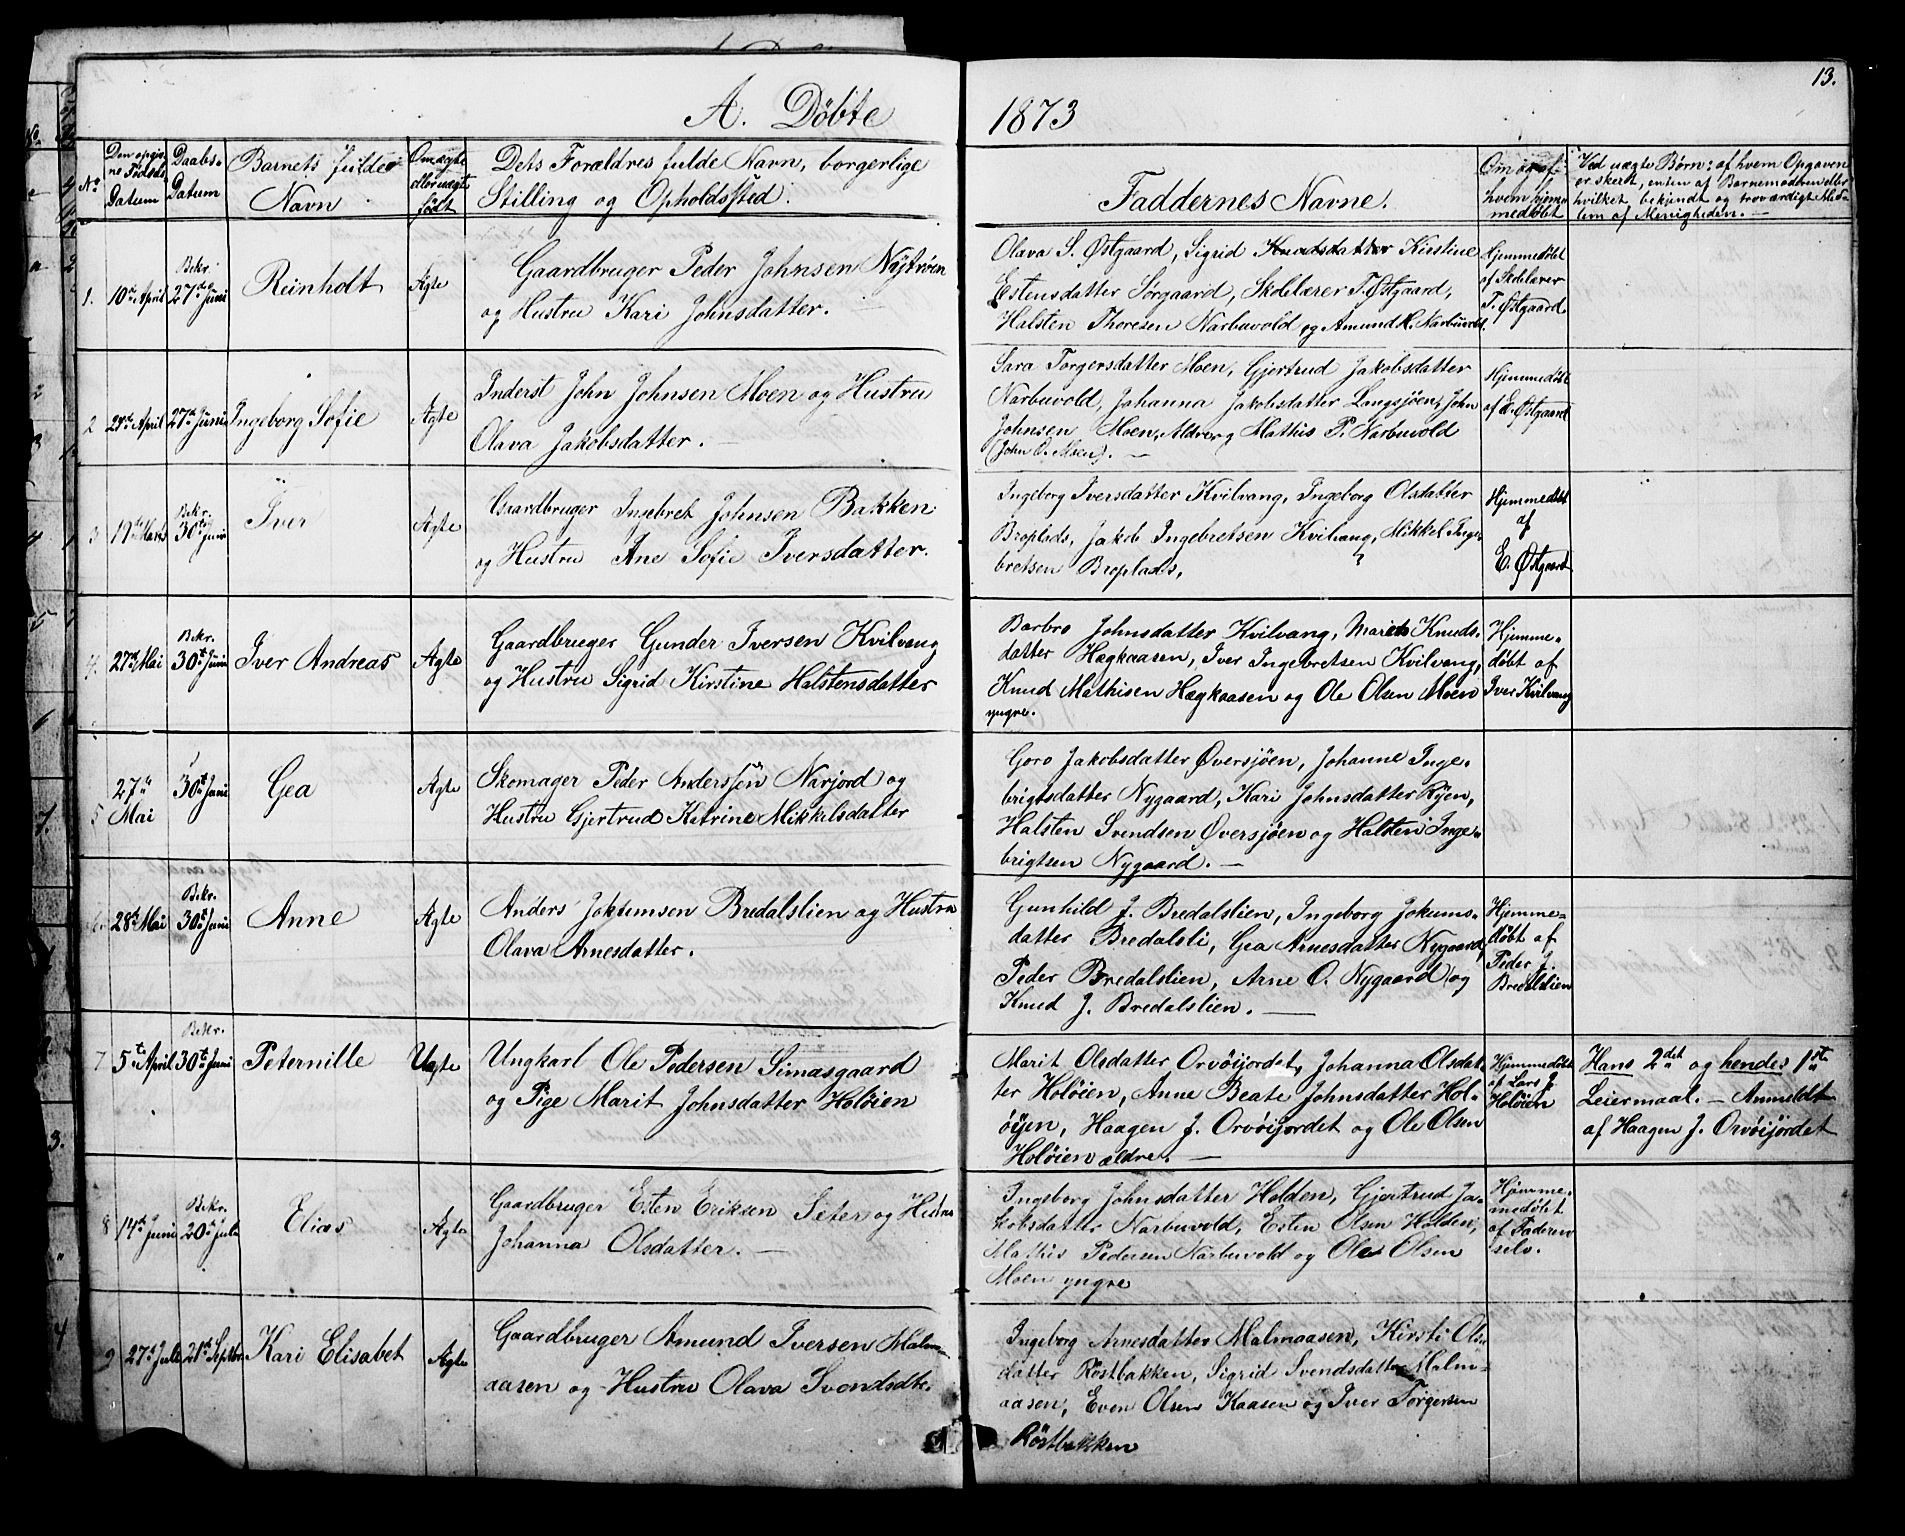 13.
A. Döbte 1873
No
Den opgiv-
ne Fødsels
Datum
Daabs-
Datum
Barnets fulde
Navn
Om ægte
eller uægte
født
Dets Forældres fulde Navn, borgerlige
Stilling og Opholdssted.
Faddernes Navne.
Om og af
hvem hjem-
medöbt
Ved uægte Børn: af hvem Opgaven
er skert, enten af Barnemoderen eller
hvilket bekjendt og troværdigt Med-
lem af Menigheden. —
1.
10de April
Bekr.
27de Juni
Reinholt
Ægte
Gaardbruger Peder Johnsen Nytrøen
og Hustru Kari Johnsdatter.
Olava S. Østgaard, Sigrid Knudsdatter Kirstine
Estensdatter Sørgaard, Skolelærer T. Østgaard,
Halsten Thoresen Narbuvold og Amund H. Narbuvold.
Hjemmedöbt
af Skolelærer
T. Østgaard
2
April
27de Juni
Ingeborg Sofie
Ægte
Inderst John Johnsen Moen og Hustru
Olava Jakobsdatter. —
Sara Torgersdatter Moen, Gjertrud Jakobsdatter
Narbuvold, Johanna Jakobsdatter Langsjøen, John
Johnsen Moen, Mathis P. Narbuvold
(John O. Moen). —
Hjemmedöbt
af E. Østgaard
3
19de Marts
Bekr.
30te Juni
Iver
Ægte
Gaardbruger Ingebret Johnsen Bakken
og Hustru Ane Sofie Iversdatter.
Ingeborg Iversdatter Kvilvang, Ingeborg Olsdatter
Broplads, Jakob Ingebretsen Kvilvang, Mikkel Inge-
bretsen Broplads,
Hjemmedöbt
af
E. Østgaard
4.
27de Mai
Bekr.
30te Juni
Iver Andreas
Ægte
Gaardbruger Gunder Iversen Kvilvang
og Hustru Sigrid Kirstine Halstensdatter
Barbro Johnsdatter Kvilvang, Marit Knuds-
datter Hægkaasen, Iver Ingebretsen Kvilvang,
Knud Mathisen Hægkaasen og Ole Olsen Moen
yngre.
Hjemme-
döbt af
Iver Kvilvang
5
27de
Mai
30te Juni
Gea
Ægte
Skomager Peder Anderssen Narjord og
Hustru Gjertrud Katrine Mikkelsdatter
Goro Jakobsdatter Øversjøen, Johanne Inge-
brigtsdatter Nygaard, Kari Johnsdatter Ryen,
Halsten Svendsen Øversjøen og Halsten Inge-
brigtsen Nygaard. —
6.
28de Mai
Bekr.
30te Juni
Anne
Ægte
Anders Jokumsen Bredalslien og Hustru
Olava Arnesdatter.
Gunhild J. Bredalslien, Ingeborg Jokums-
datter Bredalsli, Gea Arnesdatter Nygaard,
Peder Bredalslien, Arne O. Nygaard og
Knud J. Bredalslien. —
Hjemme-
döbt af
Peder J.
Bredalslien
7
5te April
Bekr.
30te Juni
Peternille
Uægte
Ungkarl Ole Pedersen Simasgaard
og Pige Marit Johnsdatter Holöien
Marit Olsdatter Orvöijordet, Johanna Olsdat-
ter Holöien, Anne Beate Johnsdatter Hol-
öijen, Haagen J. Orvöijordet og Ole Olsen
Holöien ældre. —
Hjemmedöbt
af Lars J.
Holöien
Hans 2det og hendes 1ste
Leiermaal. — Anmeldt
af Haagen J. Orvöijordet
8
14de Juni
Bekr.
20de Juli
Elias
Ægte
Gaardbruger Esten Eriksen Seter og Hustru
Johanna Olsdatter. —
Ingeborg Johnsdatter Holden, Gjertrud Ja-
kobsdatter Narbuvold, Esten Olsen Holden,
Mathis Pedersen Narbuvold og Ole Olsen
Moen yngre
Hjemme-
medöbt
af Faderen
selv.
9
27de Juli
21de Septbr
Kari Elisabet
Ægte
Gaardbruger Amund Iversen Malm-
aasen og Hustru Olava Svendsdtr.
Ingeborg Arnesdatter Malmaasen, Kirsti Ols-
datter Röstbakken, Sigrid Svendsdatter Malm-
aasen, Even Olsen Kaasen og Iver Torgersen
Röstbakken